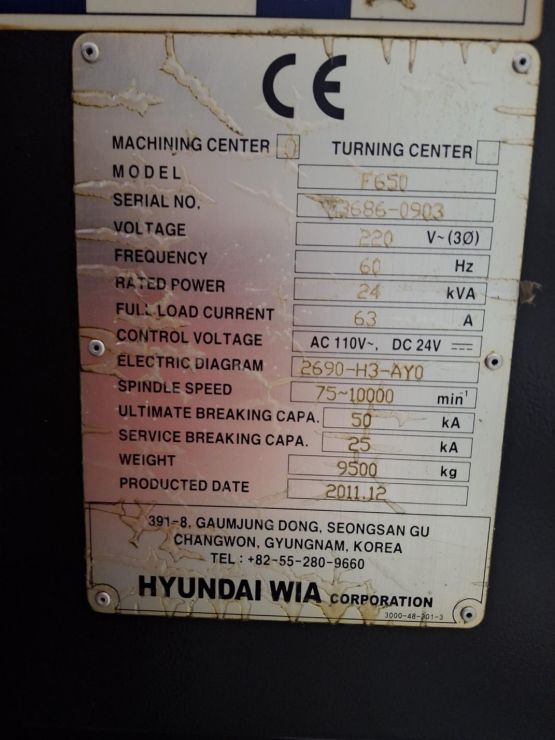 CE
MACHINING CENTER O TURNING CENTER
MODEL F650
SERIAL NO. 3686-0903
VOLTAGE 220 V~(3Ø)
FREQUENCY 60 Hz
RATED POWER 24 kVA
FULL LOAD CURRENT 63 A
CONTROL VOLTAGE AC 110V~, DC 24V ⎓
ELECTRIC DIAGRAM 2690-H3-AY0
SPINDLE SPEED 75~10000 min⁻¹
ULTIMATE BREAKING CAPA. 50 kA
SERVICE BREAKING CAPA. 25 kA
WEIGHT 9500 kg
PRODUCTED DATE 2011.12
391-8, GAUMJUNG DONG, SEONGSAN GU
CHANGWON, GYUNGNAM, KOREA
TEL : +82-55-280-9660
HYUNDAI WIA CORPORATION
3000-48-201-3